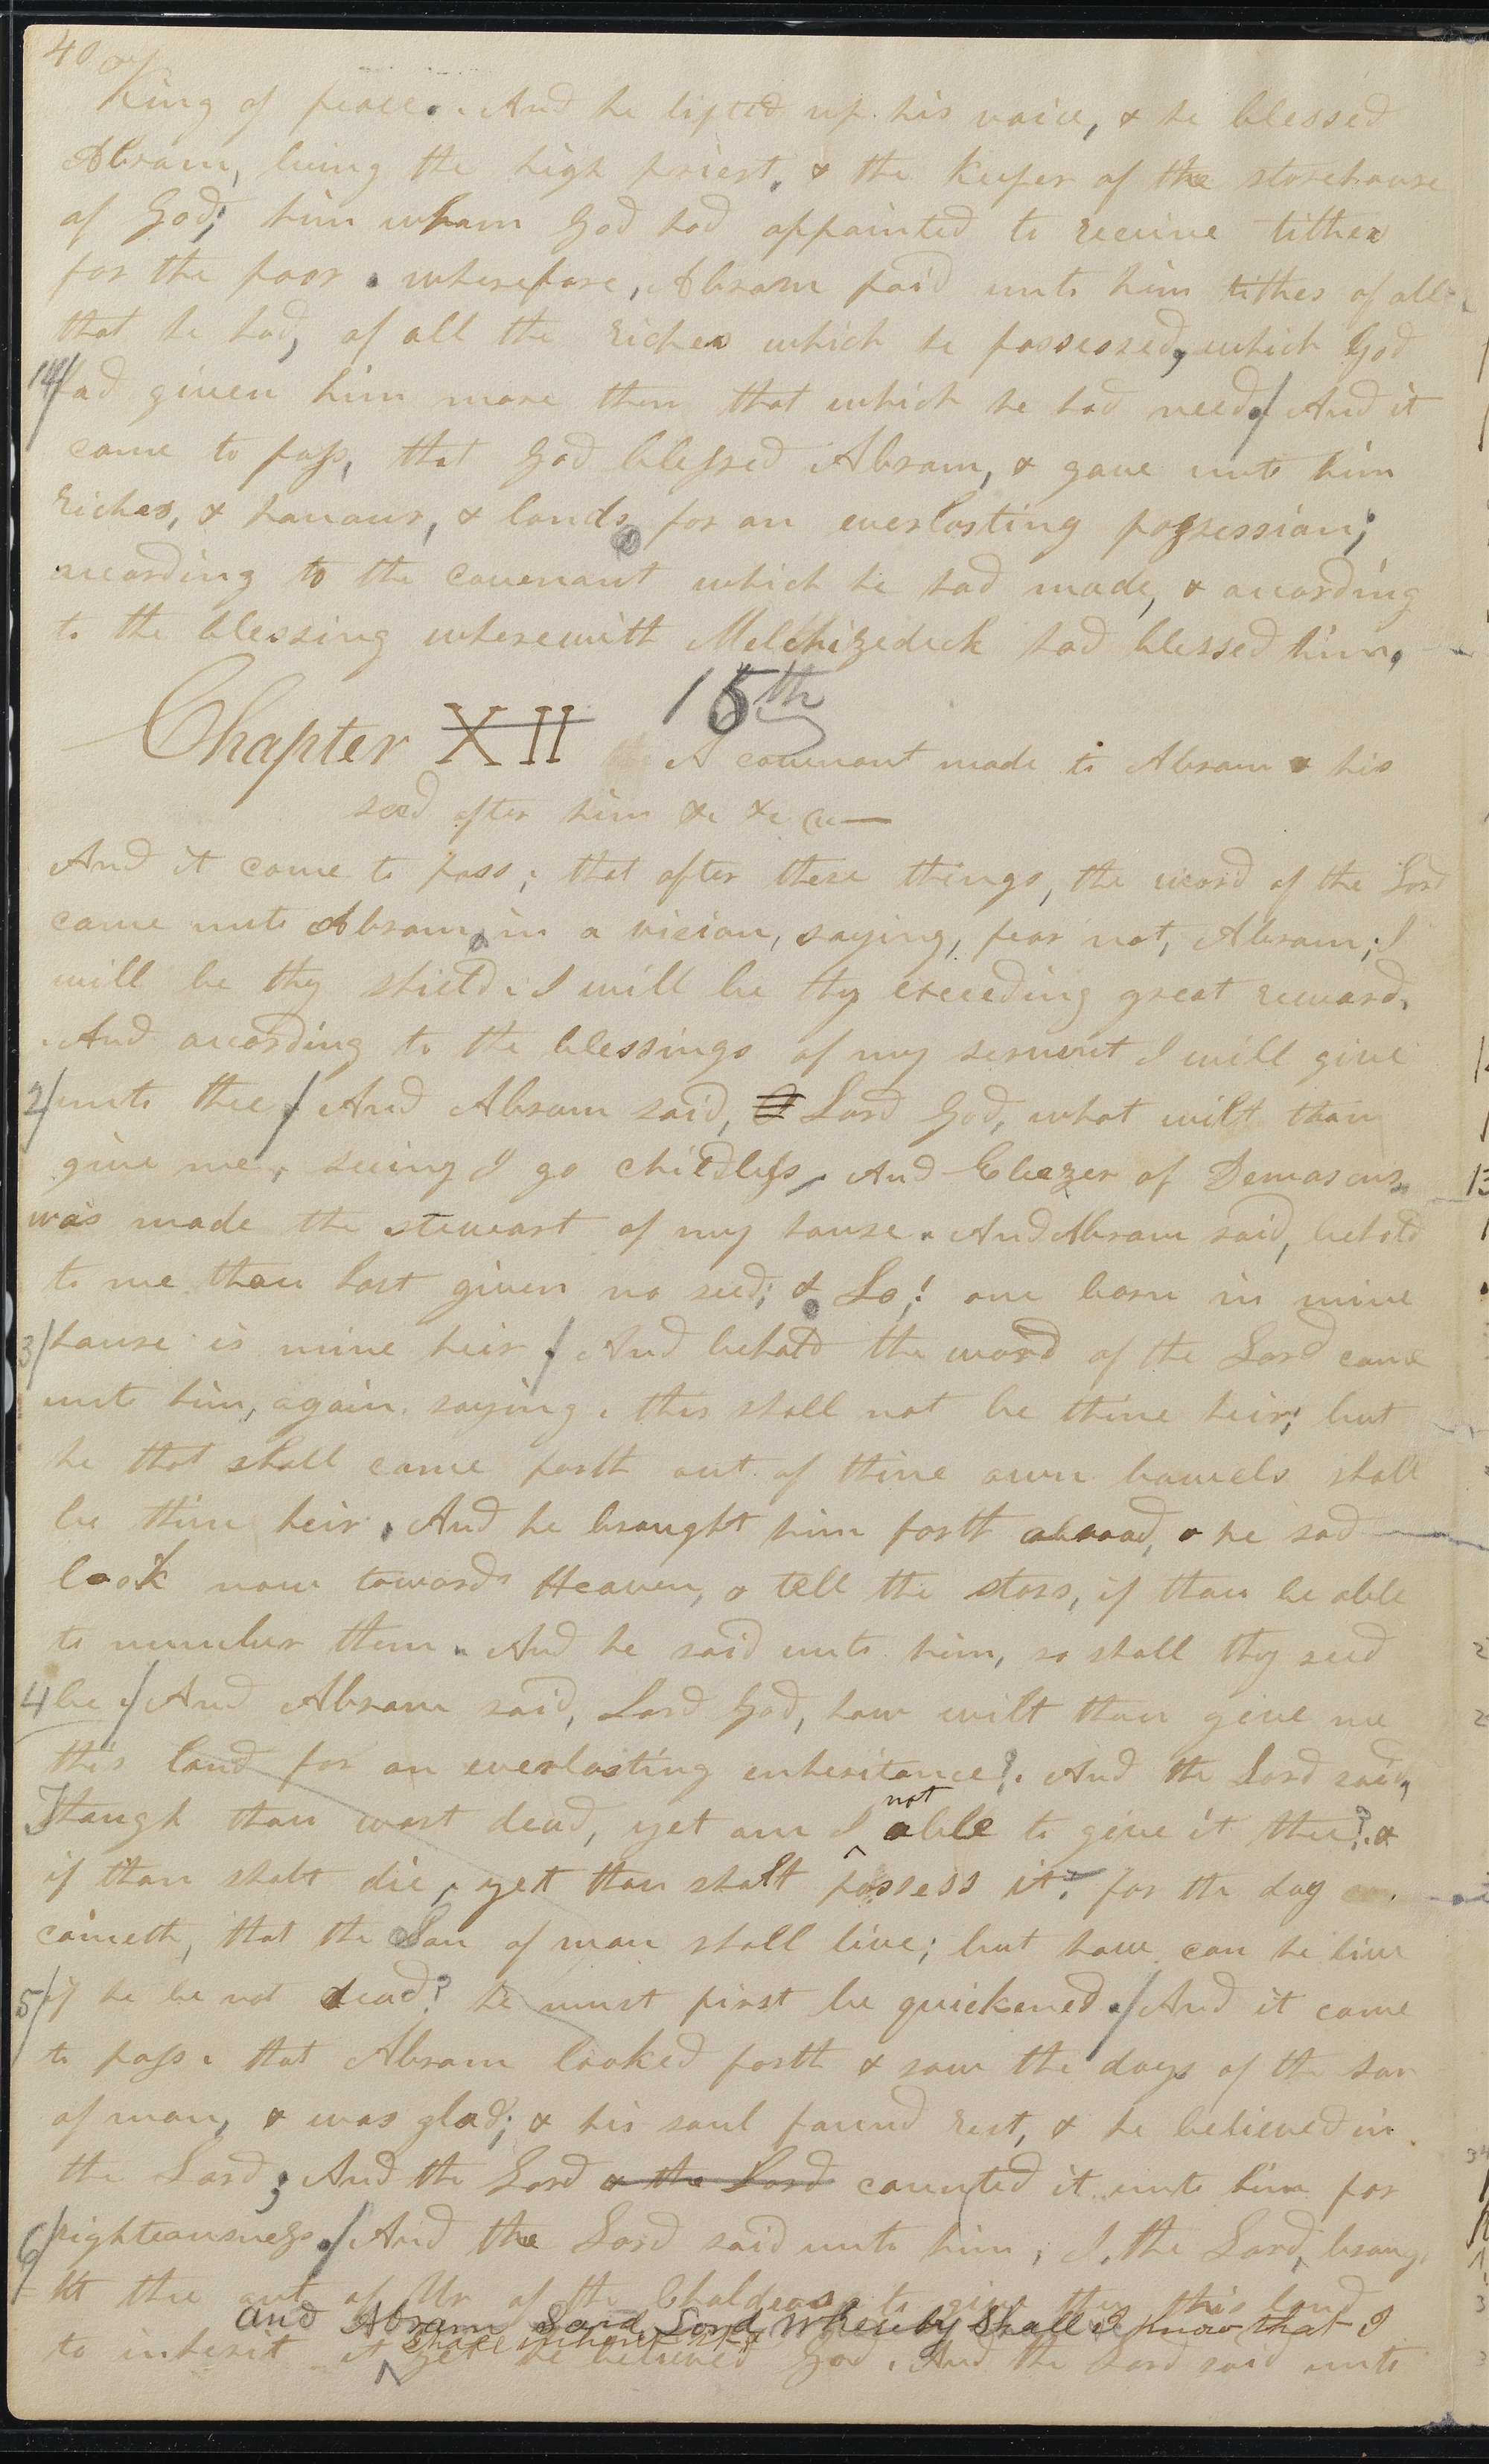 40
King of peace. And he lifted up his voice, & he blessed
Abram, being the high priest, & the keeper of the storehouse
of God; him whom God had appointed to receive tithes
for the poor. wherefore, Abram paid unto him tithes of all
that he had, of all the riches which he possessed, which God
14/ had given him more than that which he had need./ And it
came to pass, that God blessed Abram, & gave unto him
riches, & honour, & lands for an everlasting possession;
according to the covenant which he had made, & according
to the blessing wherewith Melchizedeck had blessed him.
Chapter XII 15th A covenant made to Abram & his
seed after him &c &c &c —
And it came to pass; that after these things, the word of the Lord
came unto Abram, in a vision, saying, fear not, Abram; I
will be thy shield. I will be thy exceeding great reward.
And according to the blessings of my servent I will give
2/ unto thee./ And Abram said, Lord God, what wilt thou
give me, seeing I go childless, And Eliezer of Demascus
was made the stewart of my house. And Abram said, behold
to me thou hast given no seed; & Lo! one born in mine
3/ house is mine heir./ And behold the word of the Lord came
unto him, again. saying. this shall not be thine heir; but
he that shall come forth out of thine own bowels shall
be thine heir. And he brought him forth abroad, & he sad
look now towards Heaven, & tell the stars, if thou be able
to number them. And he said unto him, so shall thy seed
4 be./ And Abram said, Lord God, how wilt thou give me
this land for an everlasting enheritance?. And the Lord said,
Though thou wast dead, yet am I
not
able to give it thee?. &
if thou shalt die, yet thou shalt possess it. for the day
cometh, that the Son of man shall live; but how can he live
5/ if he be not dead? he must first be quickened./ And it came
to pass. that Abram looked forth & saw the days of the son
of man, & was glad; & his soul found rest, & he believed in
the Lord; And the Lord & the Lord counted it unto him for
6/ righteousness./ And the Lord said unto him, I, the Lord, broug
ht thee out of Ur of the Chaldeas to give thee this land
and Abram Said Lord Whereby Shall I know that I
Shall inherit it
to inherit it yet he believed God. And the Lord said unto